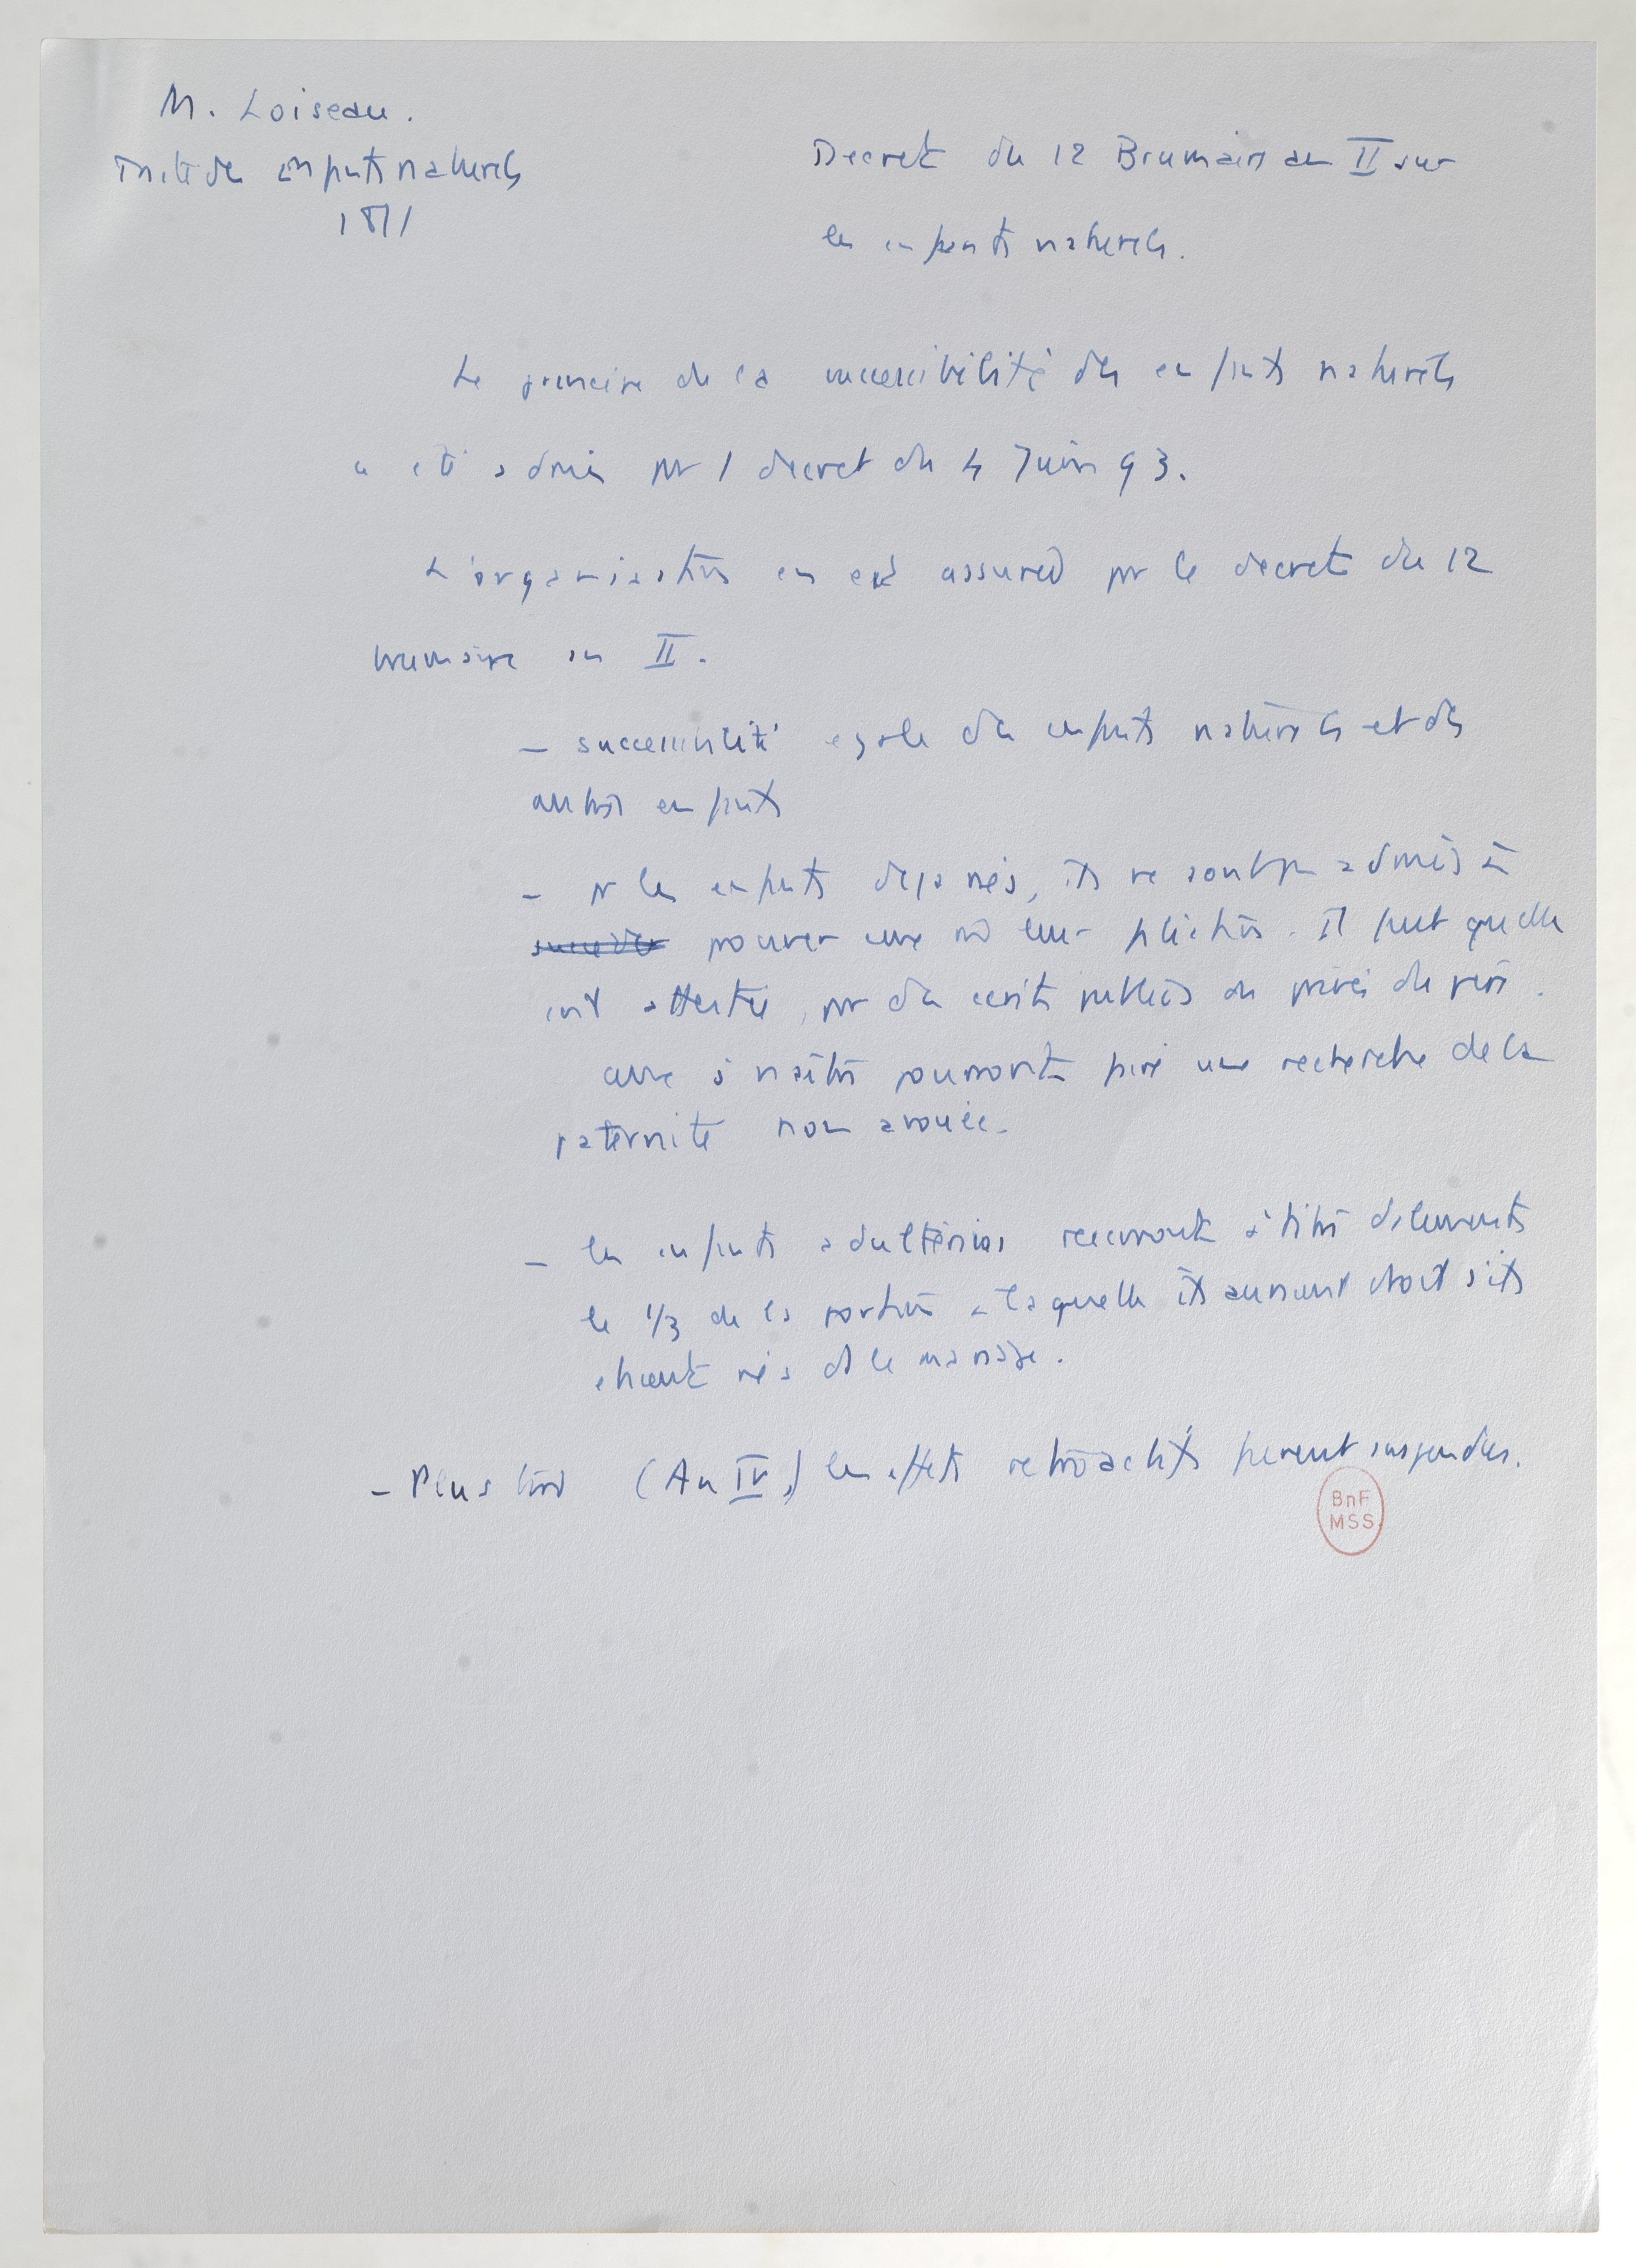 M. Loiseau.
Traité des enfants naturels
1811
Decret du 12 Brumaire an II sur
les enfants naturels.
Le principe de la successibilité des enfants naturels
a été admis par 1 decret du 4 Juin 93.
L'organisation en est assurée par le decret du 12
brumaire an II.
– successibilité egale des enfants naturels et des
autres enfants
– pr les enfants deja nés, ils ne sont pas admis à
succeder prouver leur filiation. Il faut qu'elle
soit attestée, par des ecrits publics ou privés du père.
à naitre pourront faire une recherche de la
paternité non avouée.
– les enfants adultérins recevront à titre d'aliments
le 1/3 de la portion à laquelle ils auraient droit s'ils
etaient nés ds le mariage.
– Plus tard (An IV,) les effets retroactifs furent suspendus.
BnF
MSS